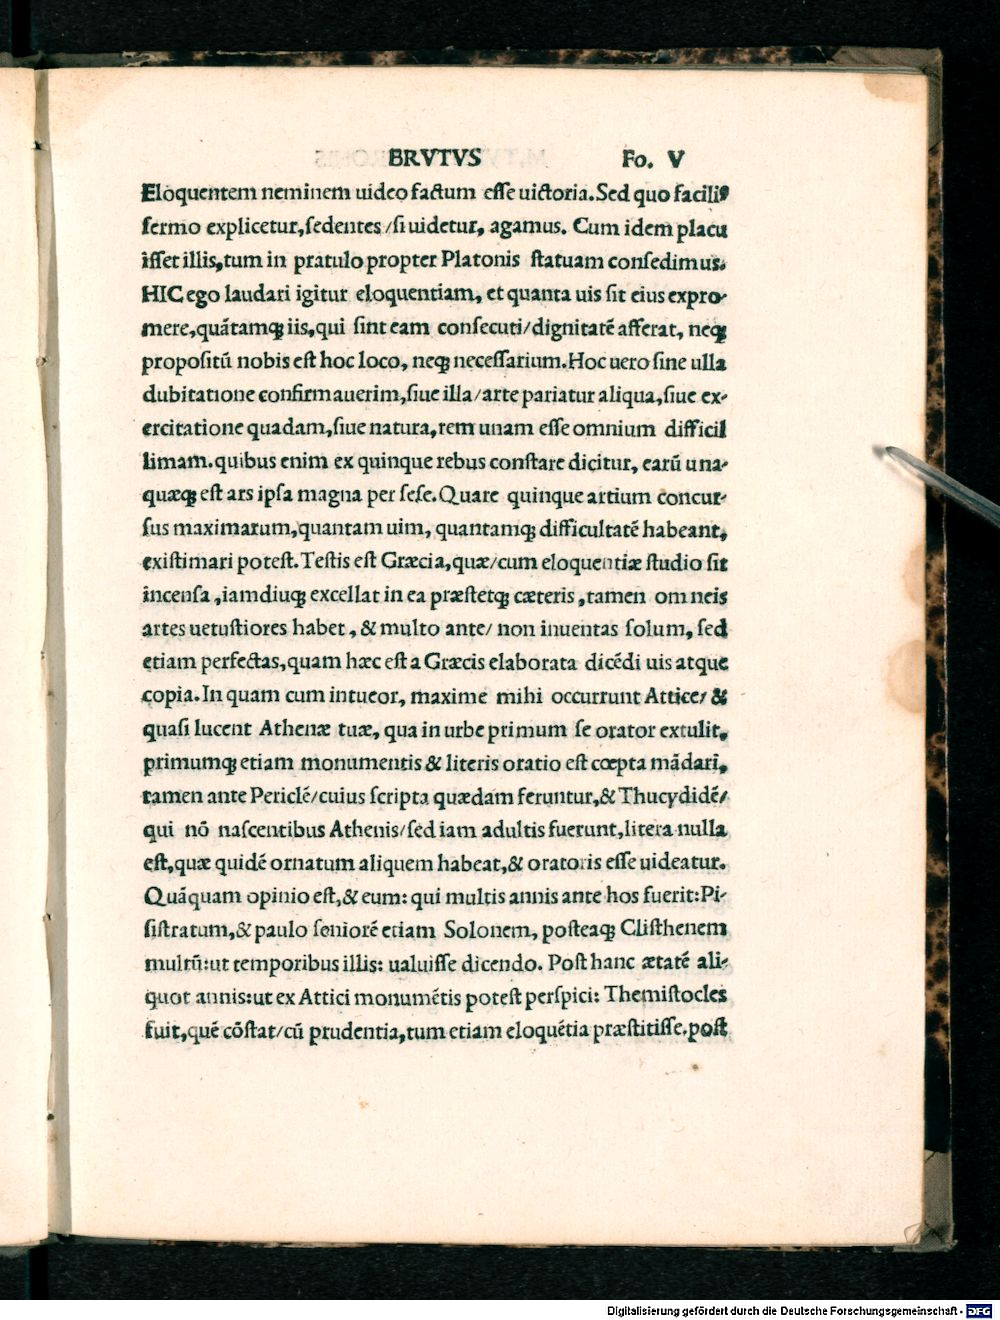 BRVTVS Fo. V
Eloquentem neminem uideo factum eſſe uictoria.Sed quo faciliꝰ
ſermo explicetur,ſedentes/ſi uidetur, agamus. Cum idem placu
iſſet illis,tum in pratulo propter Platonis ſtatuam conſedimus.
HIC ego laudari igitur eloquentiam, et quanta uis ſit eius expro-
mere,quãtamqꝫ iis,qui ſint eam conſecuti/dignitatẽ afferat, neqꝫ
propoſitũ nobis eſt hoc loco, neqꝫ neceſſarium.Hoc uero ſine ulla
dubitatione confirmauerim,ſiue illa/arte pariatur aliqua,ſiue ex-
ercitatione quadam,ſiue natura,rem unam eſſe omnium difficil
limam.quibus enim ex quinque rebus conſtare dicitur, earũ una-
quæqꝫ eſt ars ipſa magna per ſeſe.Quare quinque artium concur-
ſus maximarum,quantam uim, quantamqꝫ difficultatẽ habeant,
exiſtimari poteſt.Teſtis eſt Græcia,quæ/cum eloquentiæ ſtudio ſit
incenſa,iamdiuqꝫ excellat in ea præſtetqꝫ cæteris,tamen omneis
artes uetuſtiores habet, & multo ante/ non inuentas ſolum, ſed
etiam perfectas,quam hæc eſt a Græcis elaborata dicẽdi uis atque
copia.In quam cum intueor, maxime mihi occurrunt Attice/ &
quaſi lucent Athenæ tuæ, qua in urbe primum ſe orator extulit,
primumqꝫ etiam monumentis & literis oratio eſt cœpta mãdari,
tamen ante Periclẽ/cuius ſcripta quædam feruntur,& Thucydidẽ/
qui nõ naſcentibus Athenis/ſed iam adultis fuerunt,litera nulla
eſt,quæ quidẽ ornatum aliquem habeat,& oratoris eſſe uideatur.
Quãquam opinio eſt,& eum: qui multis annis ante hos fuerit:Pi-
ſiſtratum,& paulo ſeniorẽ etiam Solonem, poſteaqꝫ Cliſthenem
multũ:ut temporibus illis: ualuiſſe dicendo. Poſt hanc ætatẽ ali-
quot annis:ut ex Attici monumẽtis poteſt perſpici: Themiſtocles
fuit,quẽ cõſtat/cũ prudentia,tum etiam eloquẽtia præſtitiſſe.poſt
Digitalisierung gefördert durch die Deutsche Forschungsgemeinschaft - DFG